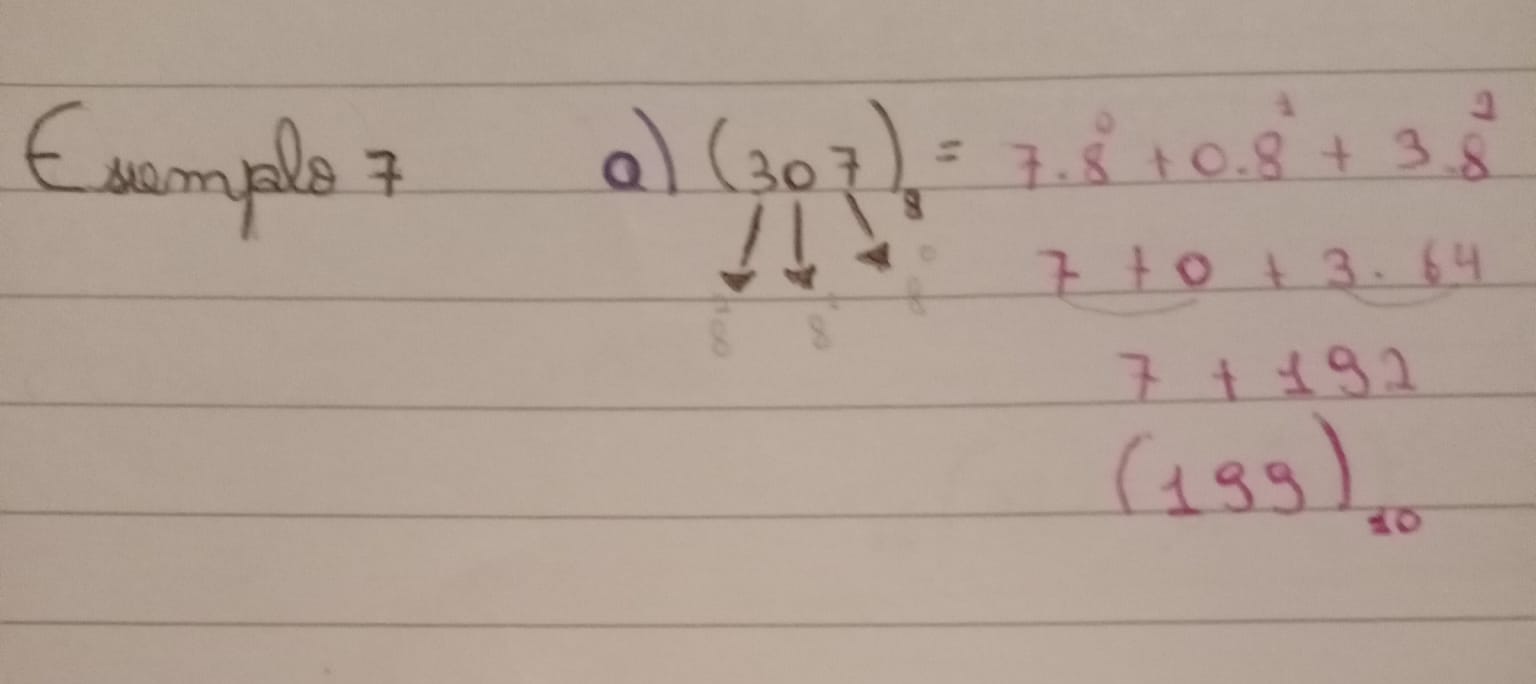 Exemplo 7 a) (307)₈ = 7.8⁰ + 0.8¹ + 3.8²
8² 8¹ 8⁰ 7 + 0 + 3.64
7 + 192
(199)₁₀